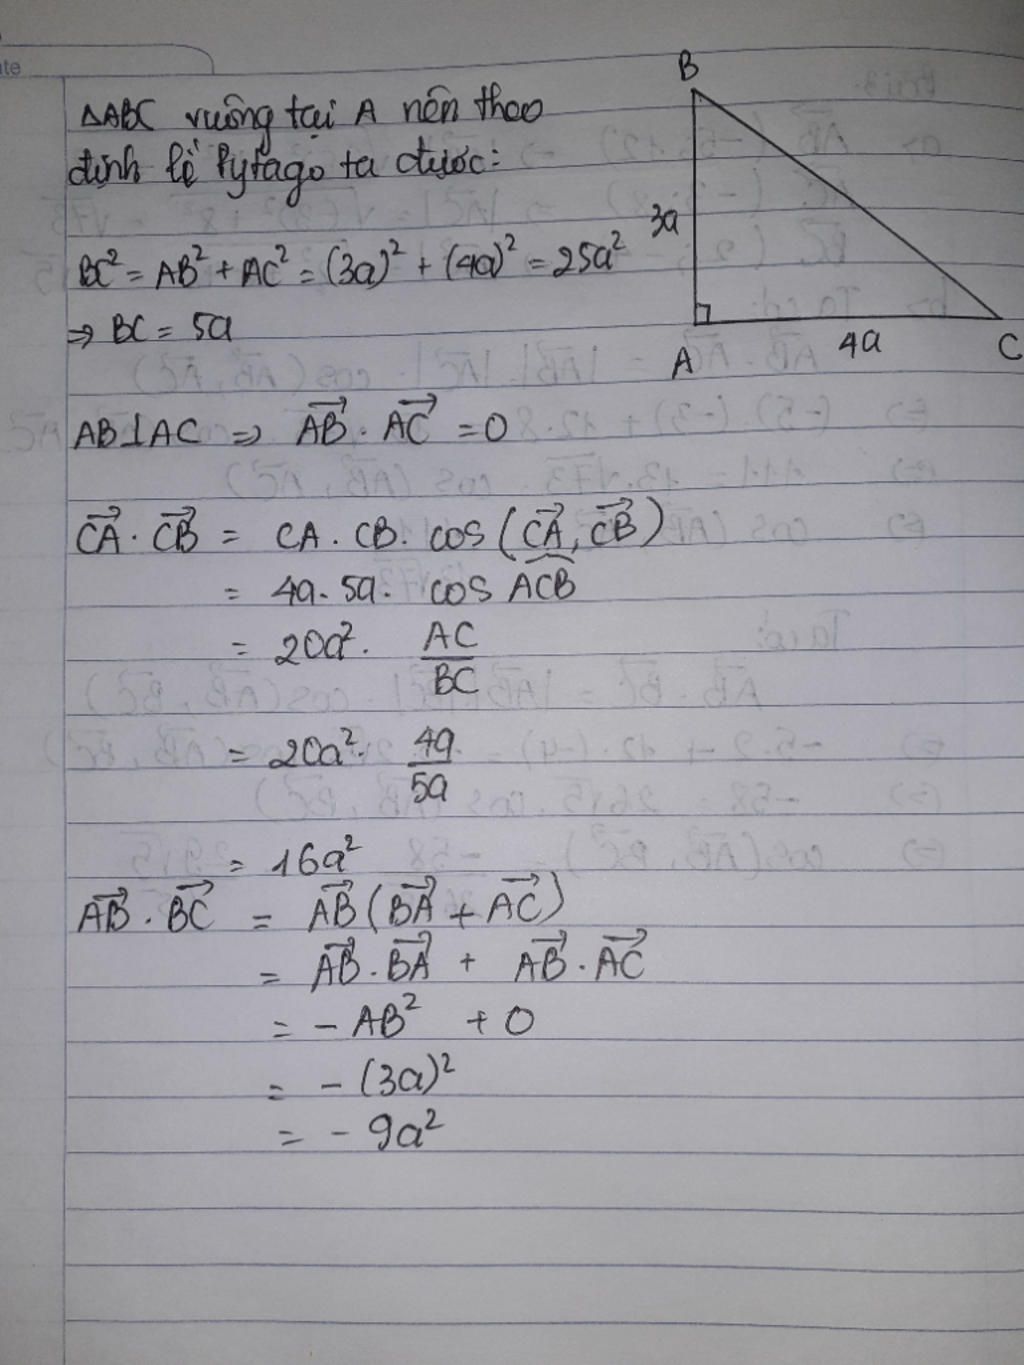 te
ΔABC vuông tại A nên theo
định lí Pytago ta được:
BC² = AB² + AC² = (3a)² + (4a)² = 25a²
⇒ BC = 5a
B
3a
A
4a
C
AB⊥AC ⇒ \overrightarrow{AB} . \overrightarrow{AC} = 0
\overrightarrow{CA} . \overrightarrow{CB} = CA . CB . cos (\overrightarrow{CA}, \overrightarrow{CB})
= 4a . 5a . cos \widehat{ACB}
= 20a² . \frac{AC}{BC}
= 20a² . \frac{4a}{5a}
= 16a²
\overrightarrow{AB} . \overrightarrow{BC} = \overrightarrow{AB} (\overrightarrow{BA} + \overrightarrow{AC})
= \overrightarrow{AB} . \overrightarrow{BA} + \overrightarrow{AB} . \overrightarrow{AC}
= - AB² + 0
= - (3a)²
= - 9a²